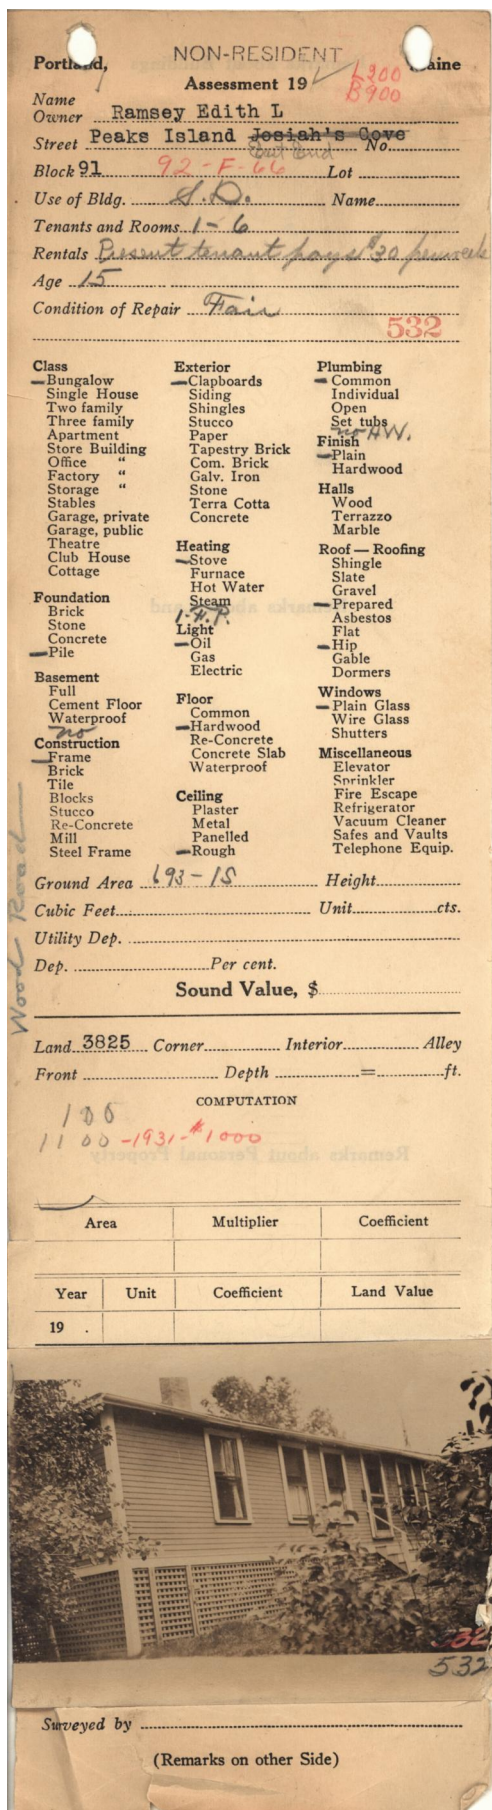 NON-RESIDENT
Portland, Maine
Assessment 19 L200
B900
Name
Owner Ramsey Edith L
Street Peaks Island Josiah's Cove No.
East End
Block 91 92-F-66 Lot
Use of Bldg. S.D. Name
Tenants and Rooms 1-6
Rentals Present tenant pays $30 per week
Age 15
Condition of Repair Fair
532
Class
Bungalow
Single House
Two family
Three family
Apartment
Store Building
Office "
Factory "
Storage "
Stables
Garage, private
Garage, public
Theatre
Club House
Cottage
Foundation
Brick
Stone
Concrete
Pile
Basement
Full
Cement Floor
Waterproof
no
Construction
Frame
Brick
Tile
Blocks
Stucco
Re-Concrete
Mill
Steel Frame
Exterior
Clapboards
Siding
Shingles
Stucco
Paper
Tapestry Brick
Com. Brick
Galv. Iron
Stone
Terra Cotta
Concrete
Heating
Stove
Furnace
Hot Water
Steam
1-F.P.
Light
Oil
Gas
Electric
Floor
Common
Hardwood
Re-Concrete
Concrete Slab
Waterproof
Ceiling
Plaster
Metal
Panelled
Rough
Plumbing
Common
Individual
Open
Set tubs
no H.W.
Finish
Plain
Hardwood
Halls
Wood
Terrazzo
Marble
Roof — Roofing
Shingle
Slate
Gravel
Prepared
Asbestos
Flat
Hip
Gable
Dormers
Windows
Plain Glass
Wire Glass
Shutters
Miscellaneous
Elevator
Sprinkler
Fire Escape
Refrigerator
Vacuum Cleaner
Safes and Vaults
Telephone Equip.
Wood Road
Ground Area 693-1S Height
Cubic Feet Unit cts.
Utility Dep.
Dep. Per cent.
Sound Value, $
Land 3825 Corner Interior Alley
Front Depth = ft.
COMPUTATION
100
1100 -1931-$1000
Area Multiplier Coefficient
Year Unit Coefficient Land Value
19 .
532
532
Surveyed by
(Remarks on other Side)